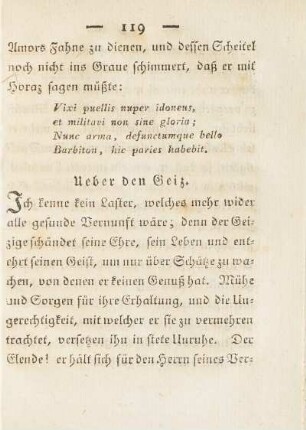 — 119 —
Amors Fahne zu dienen, und dessen Scheitel
noch nicht ins Graue schimmert, daß er mit
Horaz sagen müßte:
Vixi puellis nuper idoneus,
et militavi non sine gloria;
Nunc arma, defunctumque bello
Barbiton, hic paries habebit.
Ueber den Geiz.
Ich kenne kein Laster, welches mehr wider
alle gesunde Vernunft wäre; denn der Gei-
zige schändet seine Ehre, sein Leben und ent-
ehrt seinen Geist, um nur über Schätze zu wa-
chen, von denen er keinen Genuß hat. Mühe
und Sorgen für ihre Erhaltung, und die Un-
gerechtigkeit, mit welcher er sie zu vermehren
trachtet, versetzen ihn in stete Unruhe. Der
Elende! er hält sich für den Herrn seines Ver-